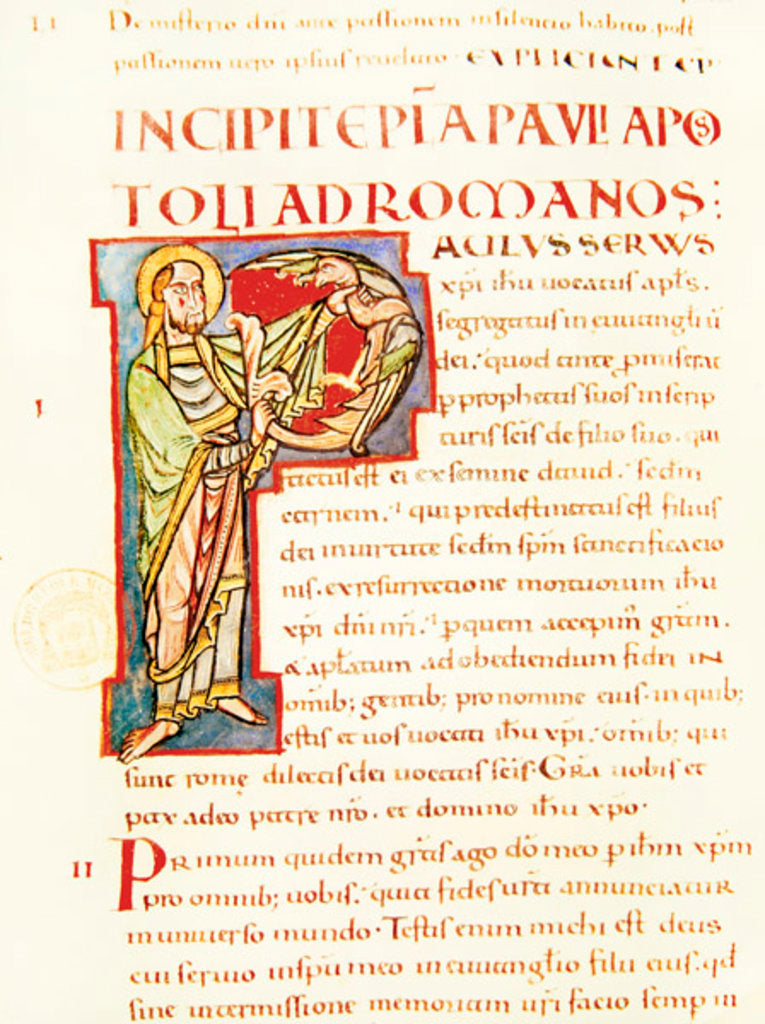 LI De misterio dni ante passionem in silencio habito. post
passionem uero ipsius reuelato. EXPLICIUNT CP
INCIPIT EPLA PAVLI APOS
TOLI AD ROMANOS:
PAULVS SERVVS
xpi ihu uocatus apls.
I segregatus in euuangliū
dei. quod ante pmiserat
p prophetas suos in scrip
turis scis de filio suo. qui
factus est ei ex semine dauid. scdm
carnem. qui predestinatus est filius
dei in uirtute scdm spm sanctificacio
nis. ex resurrectione mortuorum ihu
xpi dni nri. p quem accepim grām.
& aplatum ad obediendum fidei IN
omib; gentib; pro nomine eius. in quib;
estis et uos uocati ihu xpi. omib; qui
sunt romę dilectis dei uocatis scis. Gra uobis et
pax a deo patre nro. et domino ihu xpo.
II PRimum quidem gras ago dō meo p ihm xpm
pro omnib; uobis. quia fides urā annunciatur
in uniuerso mundo. Testis enim michi est deus
cui seruio in spu meo in euuanglio filii eius. qd
sine intermissione memoriam uri facio semp in